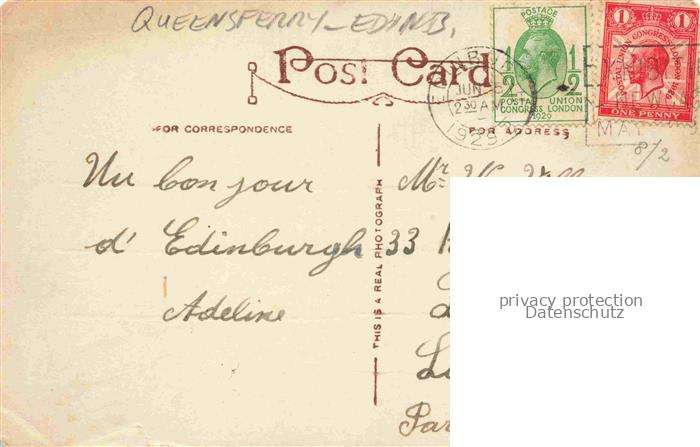 QUEENSFERRY - EDINB.
POST CARD
FOR CORRESPONDENCE
FOR ADDRESS
POSTAGE
1/2 1/2
POSTAL UNION
CONGRESS LONDON
1929
1 1
POSTAL UNION CONGRESS LONDON 1929
ONE PENNY
JUN
2 30 AM
1929
MAY
8/2
Un bon jour
d'Edinburgh
Adeline
THIS IS A REAL PHOTOGRAPH
Mr
33
privacy protection
Datenschutz